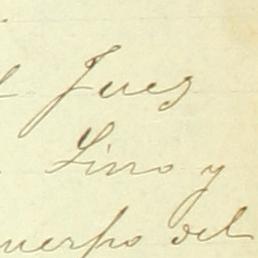 l Juez
Lino y
uerpo del